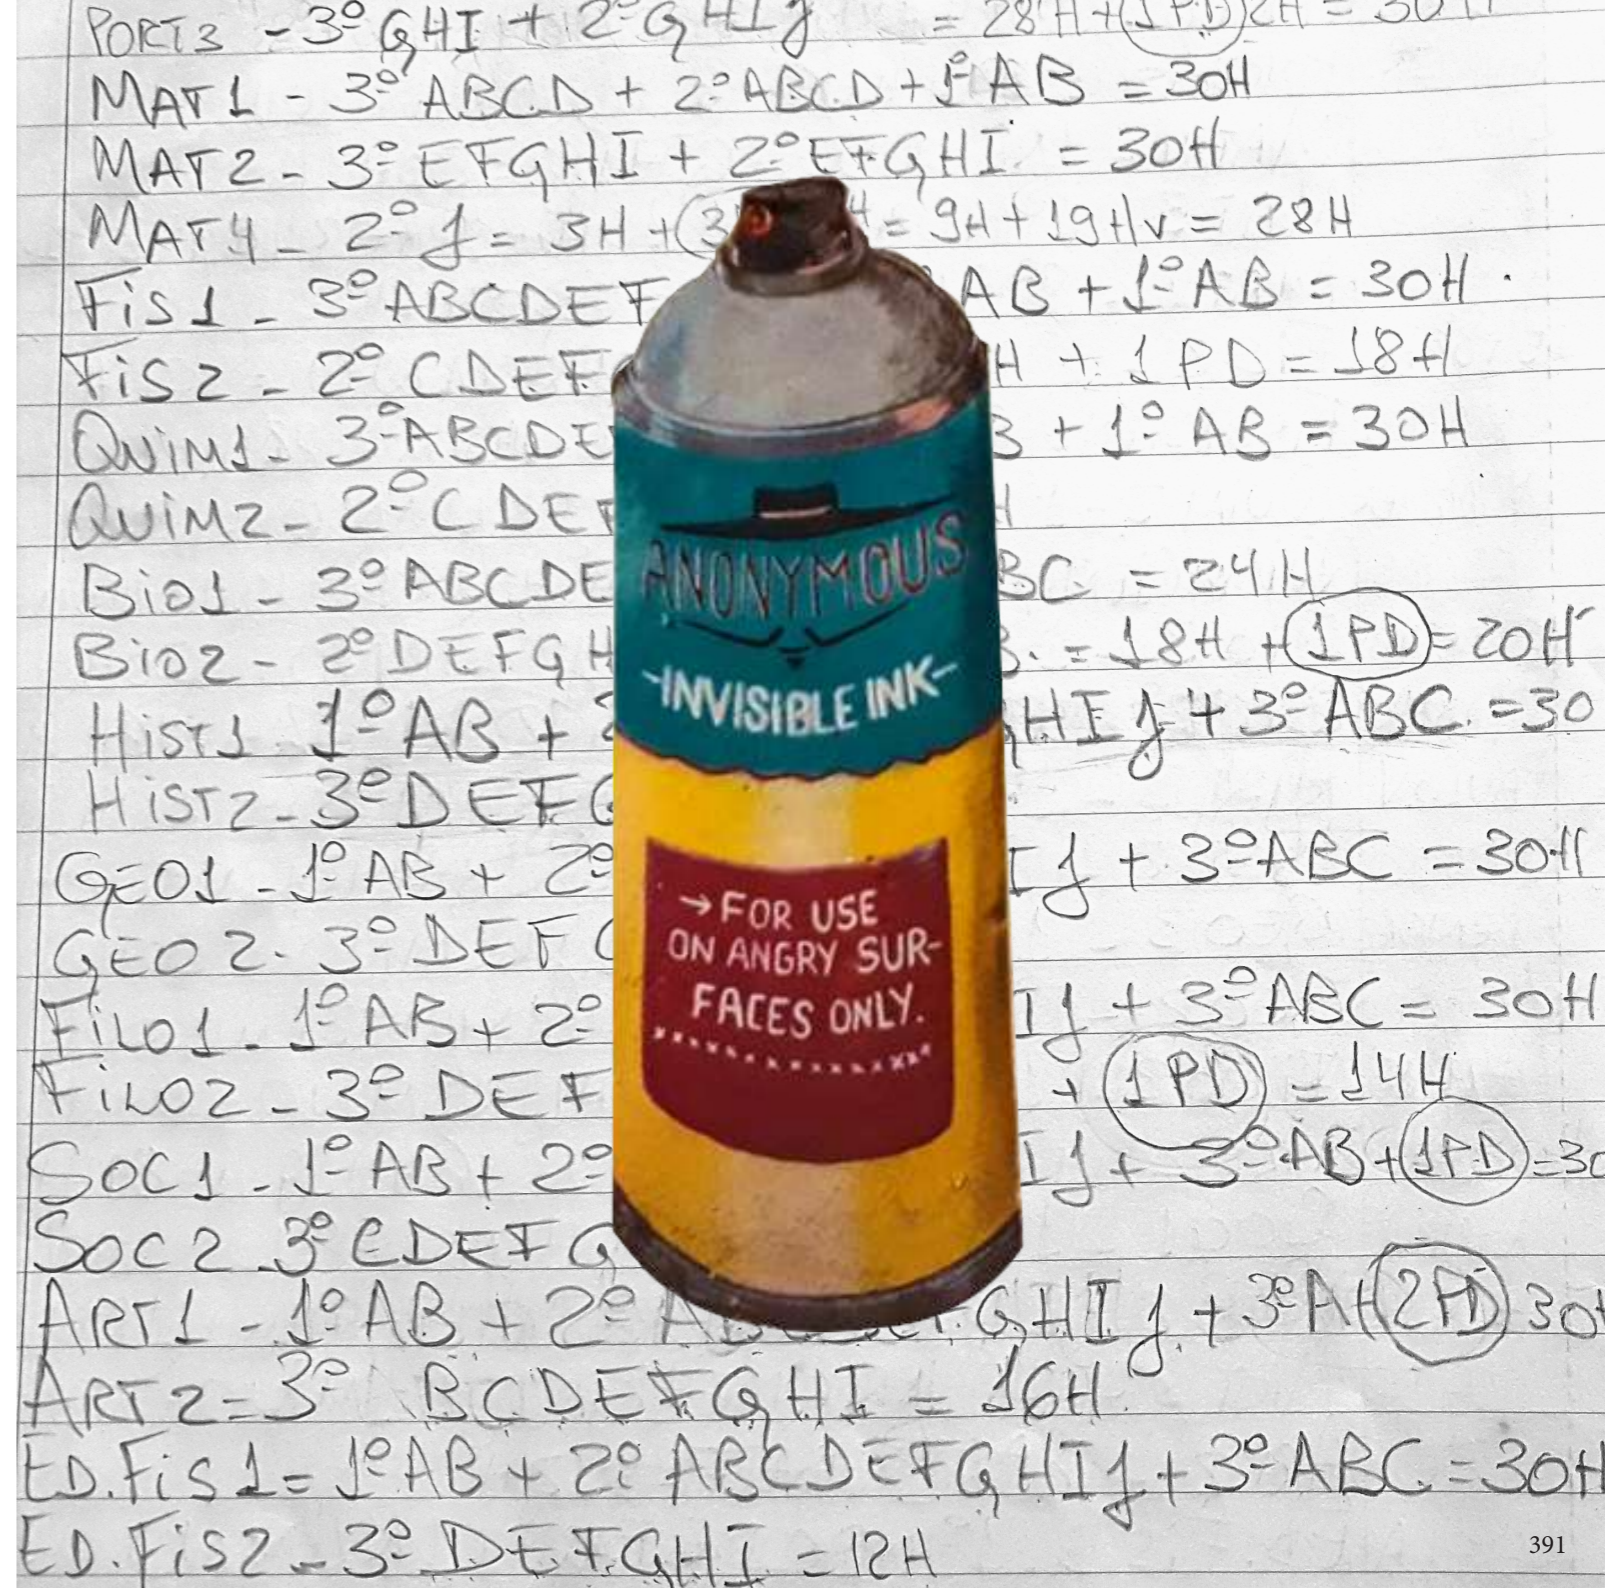 PORT3 - 3º GHI + 2º GHIJ = 28H + (1PD) 2H = 30H
MAT1 - 3º ABCD + 2º ABCD + 1º AB = 30H
MAT2 - 3º EFGHI + 2º EFGHI = 30H
MAT4 - 2º J = 3H + (3 = 9H + 19Hv = 28H
Fis1 - 3º ABCDEF AB + 1º AB = 30H
Fis2 - 2º CDEF H + 1PD = 18H
QUIM1 - 3º ABCDE + 1º AB = 30H
QUIM2 - 2º CDEF H
BiO1 - 3º ABCDE BC = 24H
BiO2 - 2º DEFGH = 18H + (1PD) = 20H
HiST1 1º AB + 2 GHIJ + 3º ABC = 30
HiST2 - 3º DEFG
GEO1 - 1º AB + 2º IJ + 3º ABC = 30H
GEO2 - 3º DEF
FiLO1 - 1º AB + 2º IJ + 3º ABC = 30H
FiLO2 - 3º DEF + (1PD) = 14H
SOC1 - 1º AB + 2º IJ + 3º AB + (1PD) = 30
SOC2 3º CDEFG
ART1 - 1º AB + 2º ABCDEFGHIJ + 3º A + (2PD) 30H
ART2 = 3º BCDEFGHI = 16H
ED.Fis1 = 1º AB + 2º ABCDEFGHIJ + 3º ABC = 30H
ED.Fis2 - 3º DEFGHI = 12H
ANONYMOUS
-INVISIBLE INK-
→ FOR USE
ON ANGRY SUR-
FACES ONLY.
391